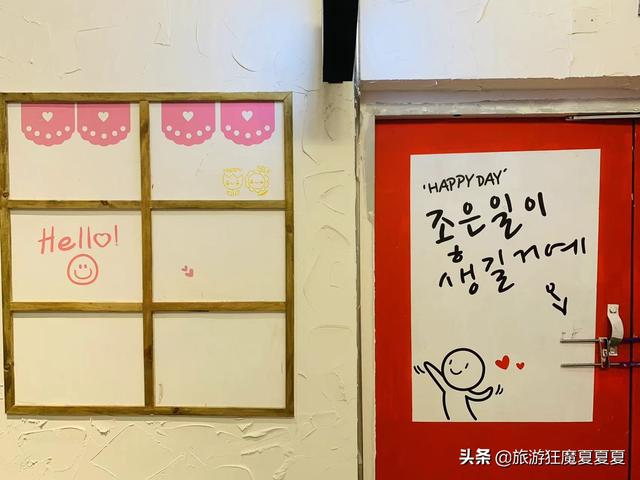 Hello!
'HAPPY DAY'
조은일이
생길거에
요
头条 @旅游狂魔夏夏夏